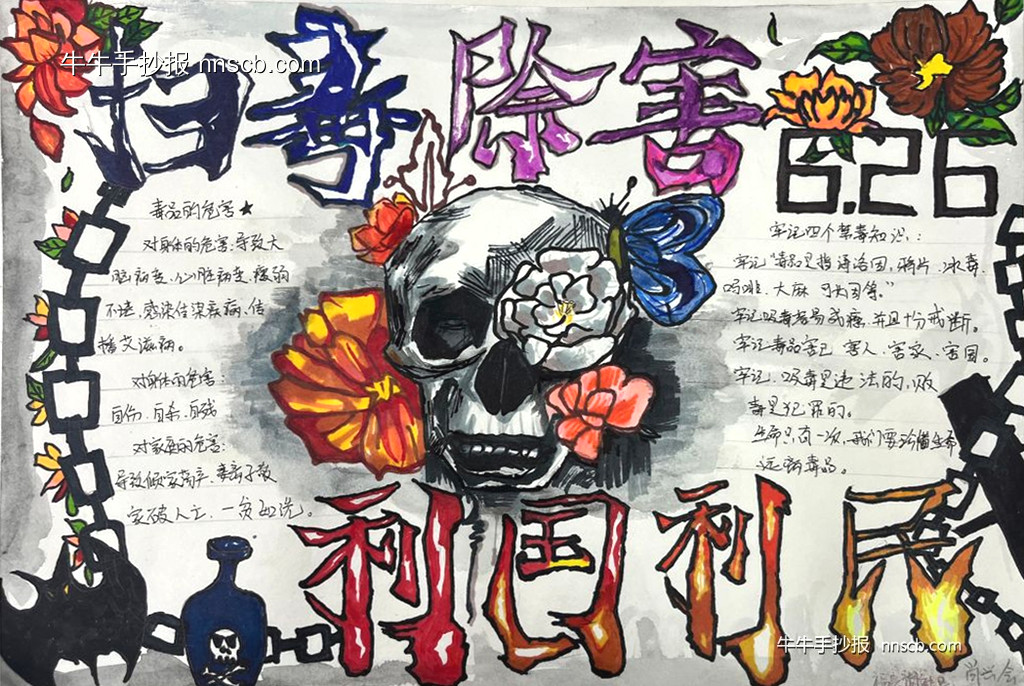 牛牛手抄报 nnscb.com
扫毒除害
6.26
毒品的危害★
对身体的危害:导致大
脑病变、心脏病变、瘦弱
不堪,感染传染疾病、传
播艾滋病。
对身体的危害:
自伤、自杀、自残
对家庭的危害:
导致倾家荡产、妻离子散
家破人亡、一贫如洗。
牢记四个禁毒知识:
牢记"毒品是指海洛因,鸦片、冰毒、
吗啡、大麻 可卡因等。"
牢记吸毒容易成瘾,并且十分戒断。
牢记毒品害己 害人、害家、害国。
牢记,吸毒是违法的,贩
毒是犯罪的。
生命只有一次,我们要珍惜生命
远离毒品。
利国利民
牛牛手抄报 nnscb.com